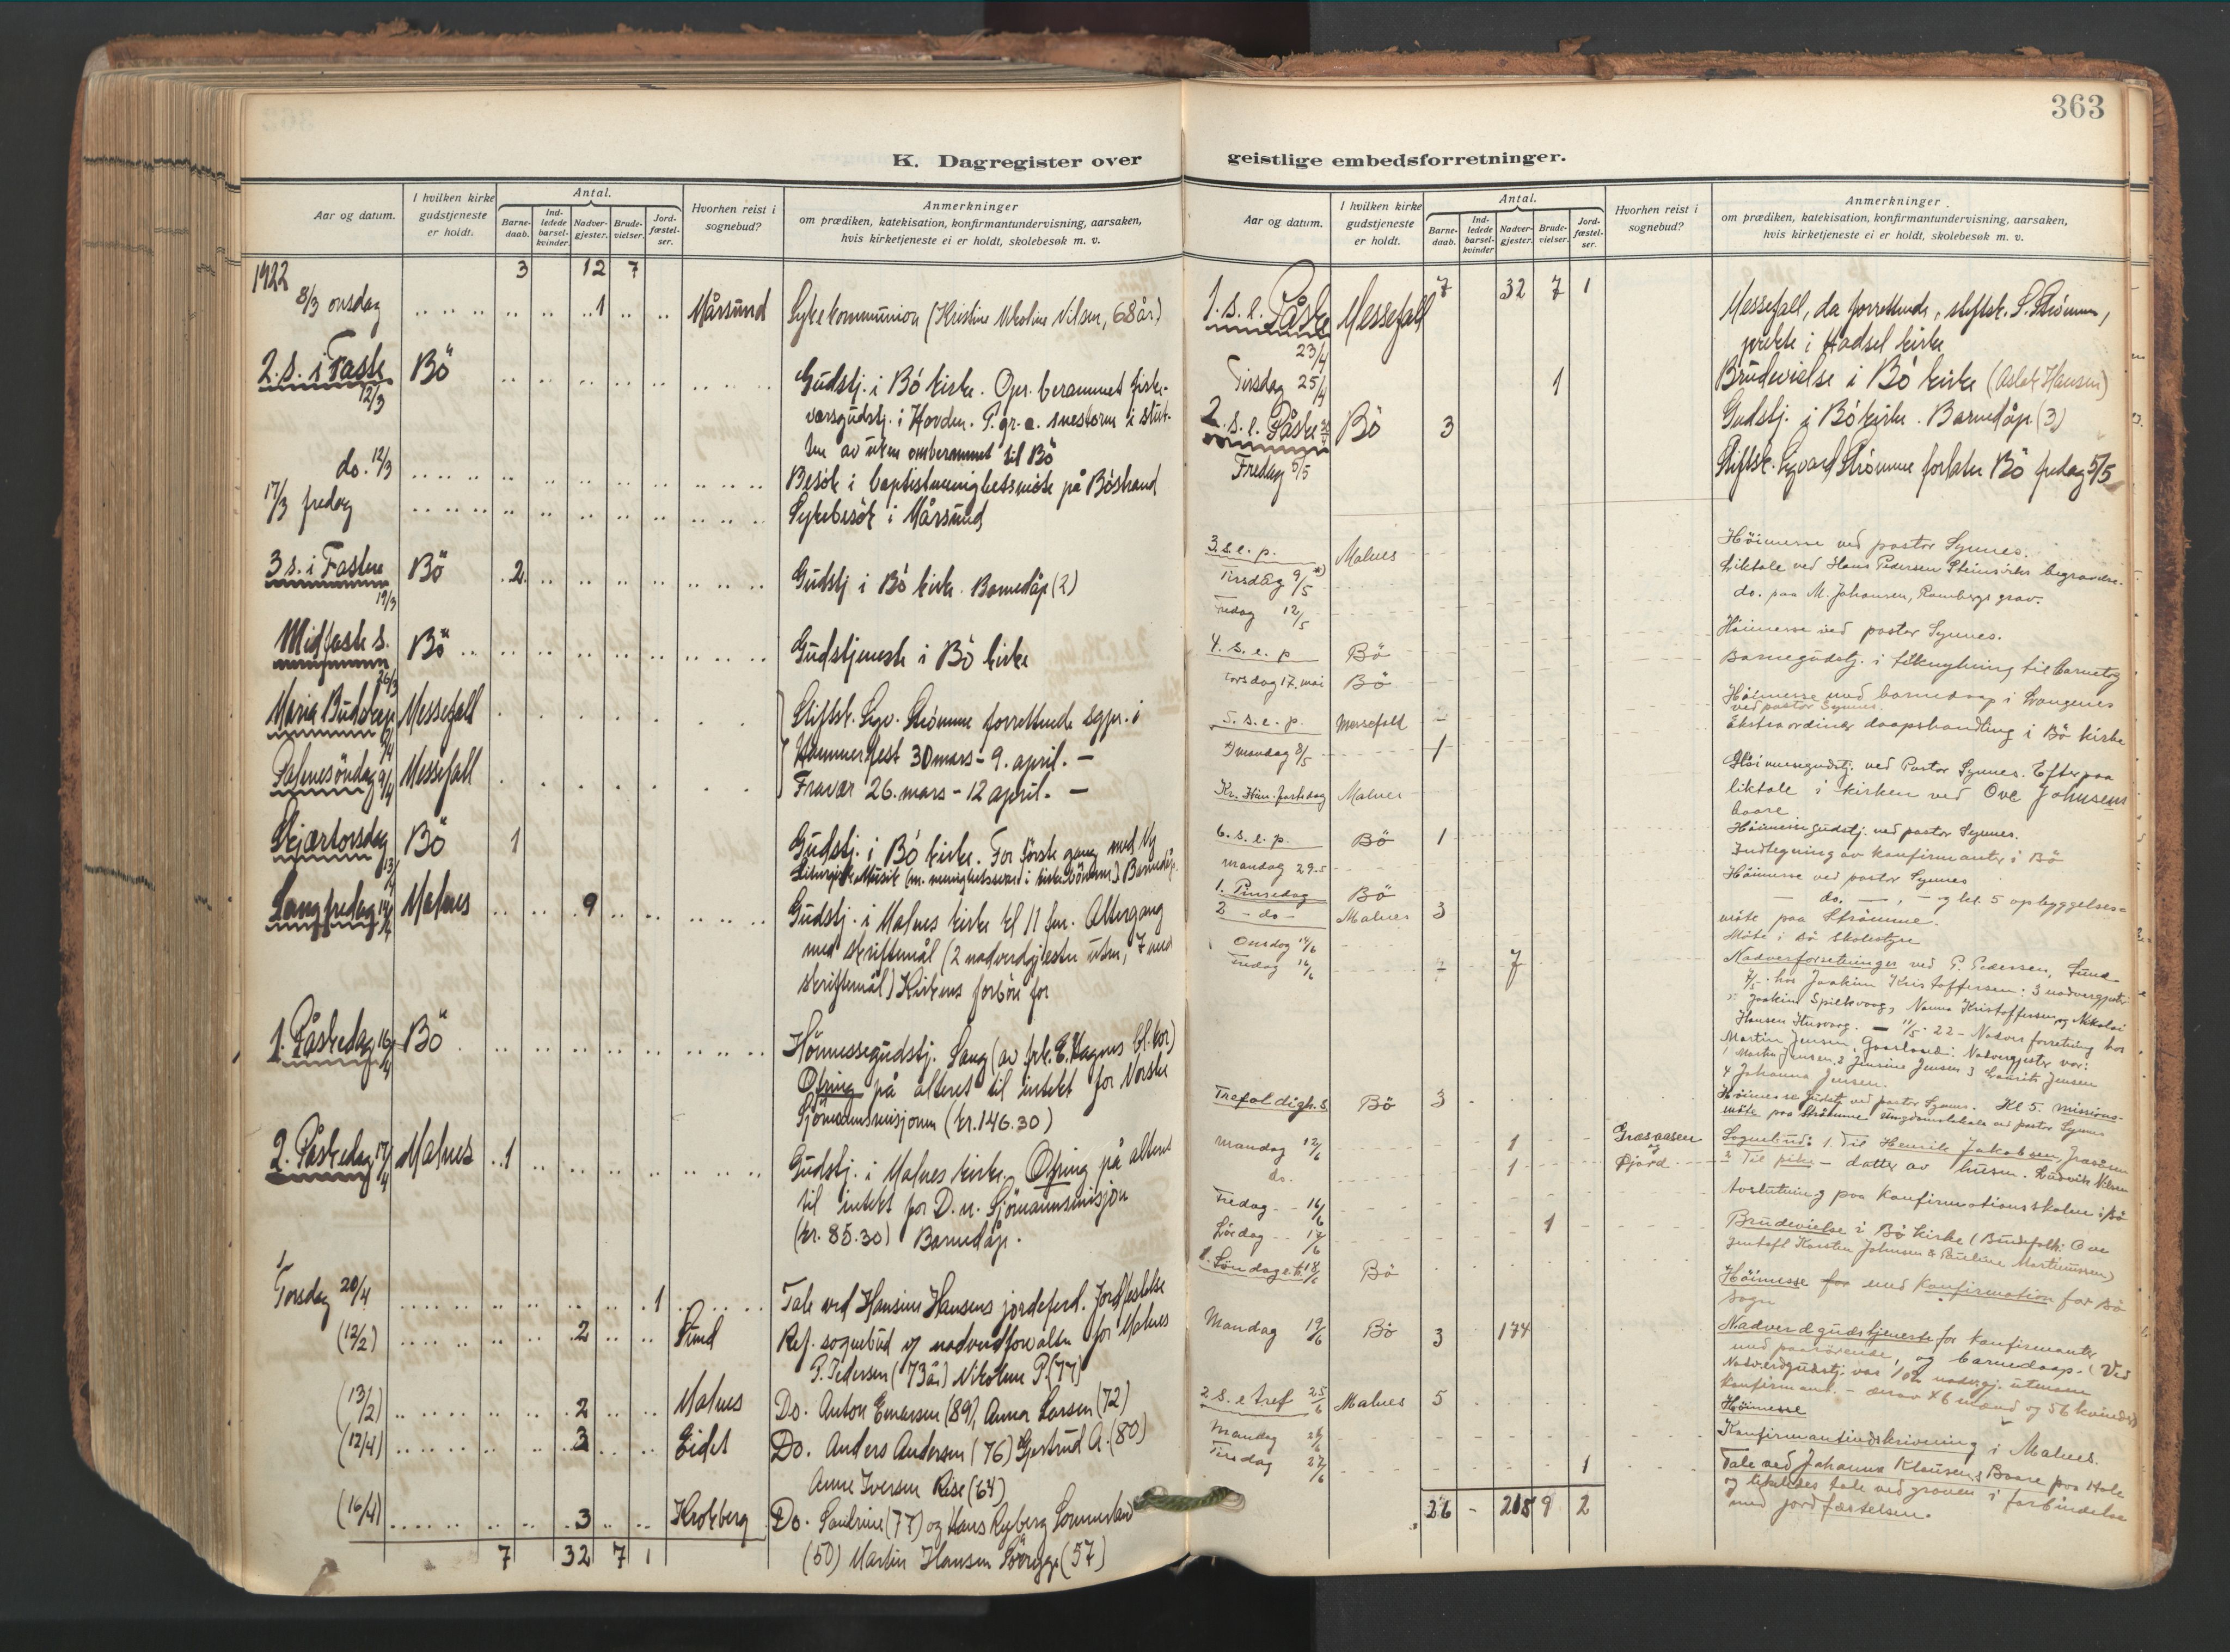 363
K. Dagregister over
Aar og datum.
I hvilken kirke gudstjeneste er holdt.
Antal.
Barne-daab.
Ind-ledede barsel-kvinder.
Nadver-gjester.
Brude-vielser.
Jord-fæstel-ser.
Hvorhen reist i sognebud?
Anmerkninger
om prædiken, katekisation, konfirmantundervisning, aarsaken,
hvis kirketjeneste ei er holdt, skolebesøk m. v.
1922 3 12 7
8/3 onsdag 1 Mårsund Sykekommunion (Kristine Nikoline Nilsen, 68 år)
2. s. i Faste 12/3 Bö Gudstj. i Bö kirke. Opr. berammet fiske-
værsgudstj. i Hovden. P. gr. a. snestorm i
til Bö
do. 12/3 Besök i baptistmenighetsmöte på Böstrand
17/3 fredag Sykebesök i Mårsund
3 s. i Fasten 19/3 Bö 2 Gudstj i Bö kirke. Barnedåp (2)
Midfaste s. 26/3 Bö Gudstjeneste i Bö kirke
Maria Budskap 2/4 Messefall Stiftsk. Sigv. Strömme forrettende sgpr. i
Hammerfest 30 mars - 9. april. -
Palmesöndag 9/4 Messefall Fravær 26. mars - 12 april. -
Skjærtorsdag 13/4 Bö 1 Gudstj. i Bö kirke. For förste gang med Ny
Liturgisk Musik (m. menighetssvar i kirkebönnen) Barnedåp.
Langfredag 14/4 Malnes 9 Gudstj. i Malnes kirke kl 11 fm. Altergang
med skriftemål (2 nadverdgjester uten, 7 med
skriftemål) Kirkens forbön for
1. Påskedag 16/4 Bö Höimessegudstj. Sang (av frk. E. Hagnes bl. kor)
Ofring på alteret til intekt for Norske
Sjömannsmisjonen (kr. 146.30)
2. Påskedag 17/4 Malnes 1 Gudstj. i Malnes kirke. Ofring på alteret
til intekt for D. n. Sjömannsmisjon
(kr. 85.30) Barnedåp.
Torsdag 20/4 1 Tale ved Hansine Hansens jordeferd. Jordfestelse
(12/2) 2 Sund Ref. sognebud og nadverdforvaltn for Malnes
P. Pedersen (73 år) Nikoline P. (77)
(13/2) 2 Malnes Do. Anton Enersen (89), Anna Larsen (72)
(12/4) 3 Eidet Do. Anders Andersen (76) Gjertrud A. (80)
Anne Iversen Rise (64)
(16/4) 3 Kråkberg Do. Saubrine (77) og Hans Ryberg Sommerland
(50) Martin Hansen (57)
7 32 7 1
geistlige embedsforretninger.
Aar og datum.
I hvilken kirke gudstjeneste er holdt.
Antal.
Barne-daab.
Ind-ledede barsel-kvinder
Nadver-gjester.
Brude-vielser.
Jord-fæstel-ser.
Hvorhen reist i sognebud?
Anmerkninger.
om prædiken, katekisation, konfirmantundervisning, aarsaken,
hvis kirketjeneste ei er holdt, skolebesøk m. v.
7 32 7 1
1. s. e. Påske 23/4 Messefall Messefall, da forrettende, stiftsk. S. Strömme,
prekte i Hadsel kirke
Tirsdag 25/4 1 Brudevielse i Bö kirke (Aslak Hansen)
2. s. e. Påske Bö 3 Gudstj. i Bö kirke. Barnedåp (3)
Fredag 5/5 Stiftsk. Sigvard Strömme forlater Bö fredag 5/5
3. s. e. p. Malnes Höimesse ved pastor Synnes.
Tirsdag 9/5 Liktale ved Hans Pedersen Steinsviks begravelse.
Fredag 12/5 do. paa M. Johansen, Rambergs grav.
4. s. e. p Bö Höimesse ved pastor Synnes.
Torsdag 17. mai Bö Barnegudstj. i tilknytning til barnetog
5. s. e. p. Messefald Höimesse med barnedaap i Langenes
ved pastor Synnes.
Mandag 8/5 1 Ekstraordinær daapshandling i Bö kirke
Kr. Him. fartsdag Malnes Höimessegudstj. ved Pastor Synnes. Efterpaa
liktale i kirken ved Ove Johnsens
baare
6. s. e. p. Bö 1 Höimessegudstj. ved pastor Synnes.
Mandag 29.5 Indtegning av konfirmanter i Bö
1. Pinsedag Bö Höimesse ved pastor Synnes
2 - do - Malnes 3 - do. - , - og kl. 5 opbyggelses-
möte paa Strömme.
Onsdag 14/6 Möte i Bö skolestyre
Fredag 16/6 7 Nadverforretninger ved P. Pedersen, Sund
hos Joakim Kristoffersen: 3 nadvergjester
Joakim Spilkevaag, Nanna Kristoffersen og Nikolai
Hansen Husvaag. - 11/5. 22 - Nadverforretning hos
Martin Jensen, Gaarland: Nadvergjester var:
1 Martin Jensen, 2 Jensine Jensen 3 Laurits Jensen
4 Johanna Jensen.
Trefoldigh. s. Bö 3 Höimesse Gudstj ved pastor Synnes. Kl 5. missions-
möte paa Strömme Ungdomslokale ved pastor Synnes
Mandag 12/6 1 Græsaasen og Sognebud: 1. Til Henrik Jakobsen, Græsåsen
do. 1 Fjord 2 Til pike - datter av husm. Ludvik Nilsen
Fredag 16/6 Avslutning paa konfirmationsskolen i Bö
Lördag 17/6 1 Brudevielse i Bö kirke (Brudefolk: Ove
Gustaft Karsten Johnsen & Pauline Martinussen)
1. Söndag e. tr. 18/6 Bö Höimesse for med Konfirmation for Bö
Sogn
Mandag 19/6 Bö 3 174 Nadverdgudstjeneste for konfirmanter
med paarörende, og barnedaap. (Ved
Nadverdgudstj. var 102 nadvergj. utenom
konfirmant. - derav 46 mænd og 56 kvinder)
2. s. e tref 25/6 Malnes 5 Höimesse
Mandag 26/6 Konfirmantindskrivning i Malnes.
Tirsdag 27/6 1 Tale ved Johanna Klausens Baare paa Hole
og likeledes tale ved graven i forbindelse
med jordfæstelsen.
26 - 218 9 2